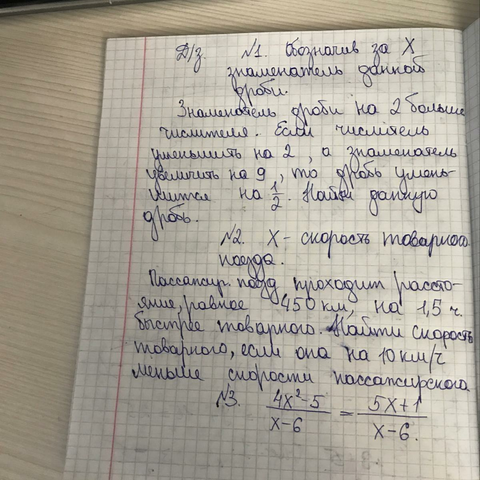 Д/з. №1. Обозначив за X
знаменатель данной
дроби.
Знаменатель дроби на 2 больше
числителя. Если числитель
уменьшить на 2, а знаменатель
увеличить на 9, то дробь умень-
шится на 1/2. Найти данную
дробь.
№2. X - скорость товарного
поезда.
Пассажир. поезд проходит рассто-
яние, равное 450 км, на 1,5 ч.
быстрее товарного. Найти скорость
товарного, если она на 10 км/ч
меньше скорости пассажирского
№3. (4x²-5)/(x-6) = (5x+1)/(x-6).